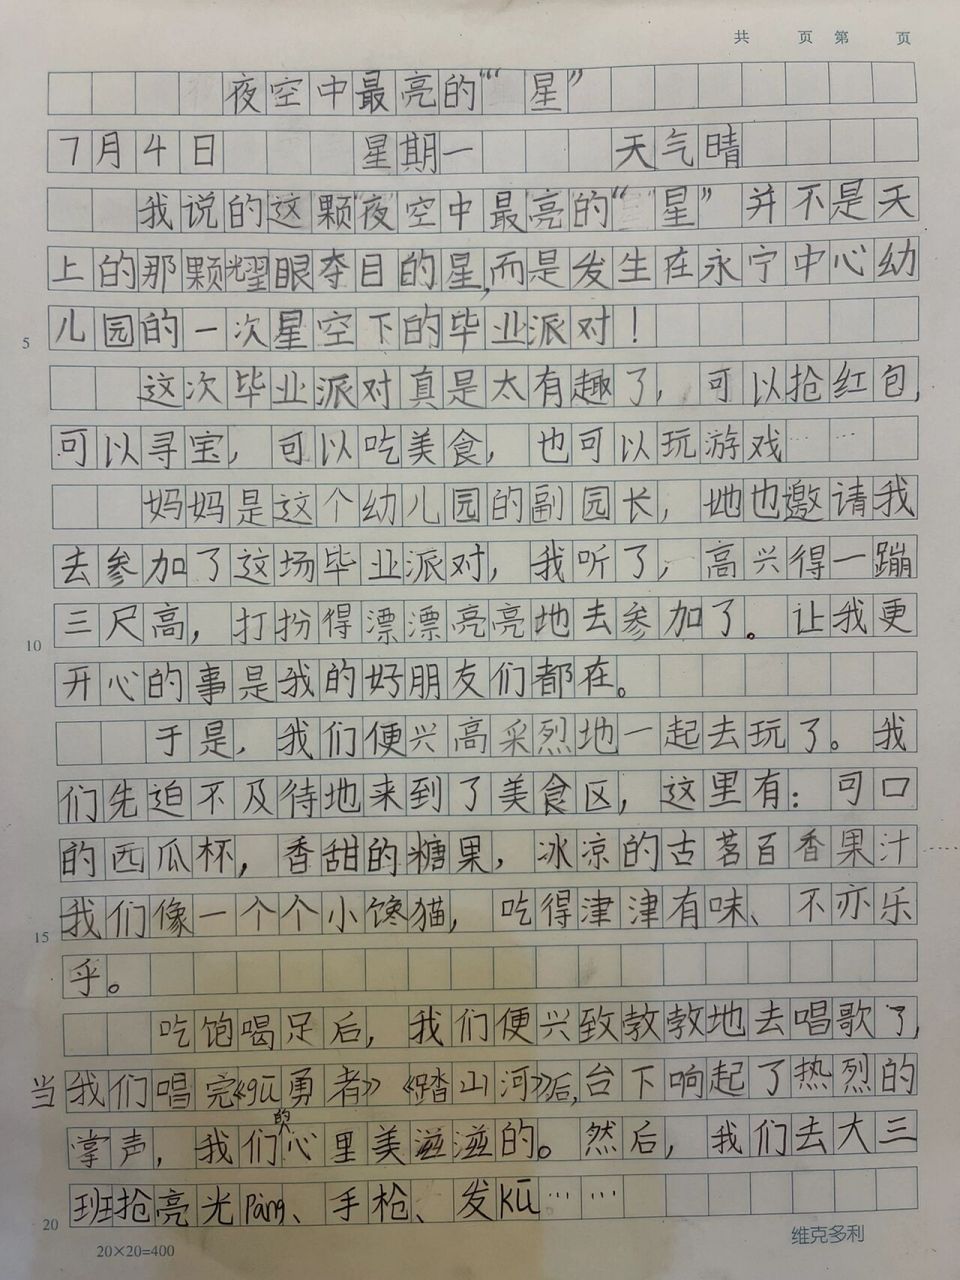 共 页 第 页
夜空中最亮的“星”
7月4日 星期一 天气晴
我说的这颗“夜空中最亮的“星”并不是天
上的那颗耀眼夺目的星,而是发生在永宁中心幼
5 儿园的一次星空下的毕业派对！
这次毕业派对真是太有趣了，可以抢红包,
可以寻宝，可以吃美食，也可以玩游戏……
妈妈是这个幼儿园的副园长，她也邀请我
去参加了这场毕业派对，我听了，高兴得一蹦
10 三尺高，打扮得漂漂亮亮地去参加了。让我更
开心的事是我的好朋友们都在。
于是，我们便兴高采烈地一起去玩了。我
们先迫不及待地来到了美食区，这里有：可口
的西瓜杯，香甜的糖果，冰凉的古茗百香果汁……
15 我们像一个个小馋猫，吃得津津有味、不亦乐
乎。
吃饱喝足后，我们便兴致教教地去唱歌了,
当我们唱完《gū勇者》《踏山河》后,台下响起了热烈的
掌声，我们的心里美滋滋的。然后，我们去大三
20 班抢亮光pàng、手枪、发kū……
20×20=400 维克多利